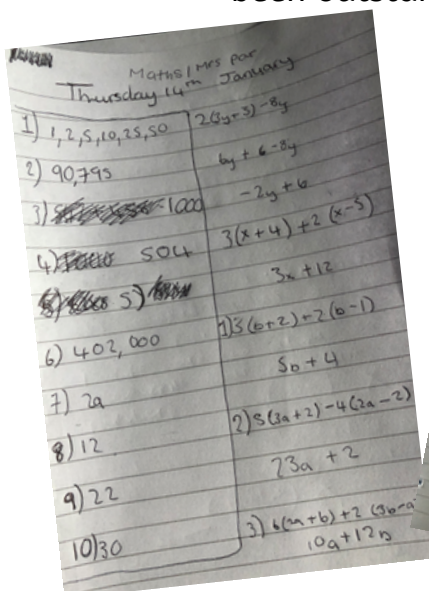 Maths/Mrs Par
Thursday 14th January
1) 1,2,5,10,25,50
2) 90,795
3) 1000
4) 504
5)
6) 402,000
7) 2a
8) 12
9) 22
10) 30
2(3y+3)-8y
6y+6-8y
-2y+6
3(x+4)+2(x-5)
3x+12
1) 3(b+2)+2(b-1)
5b+4
2) 5(3a+2)-4(2a-2)
23a+2
3) 6(2a+b)+2(3b-a
10a+12b